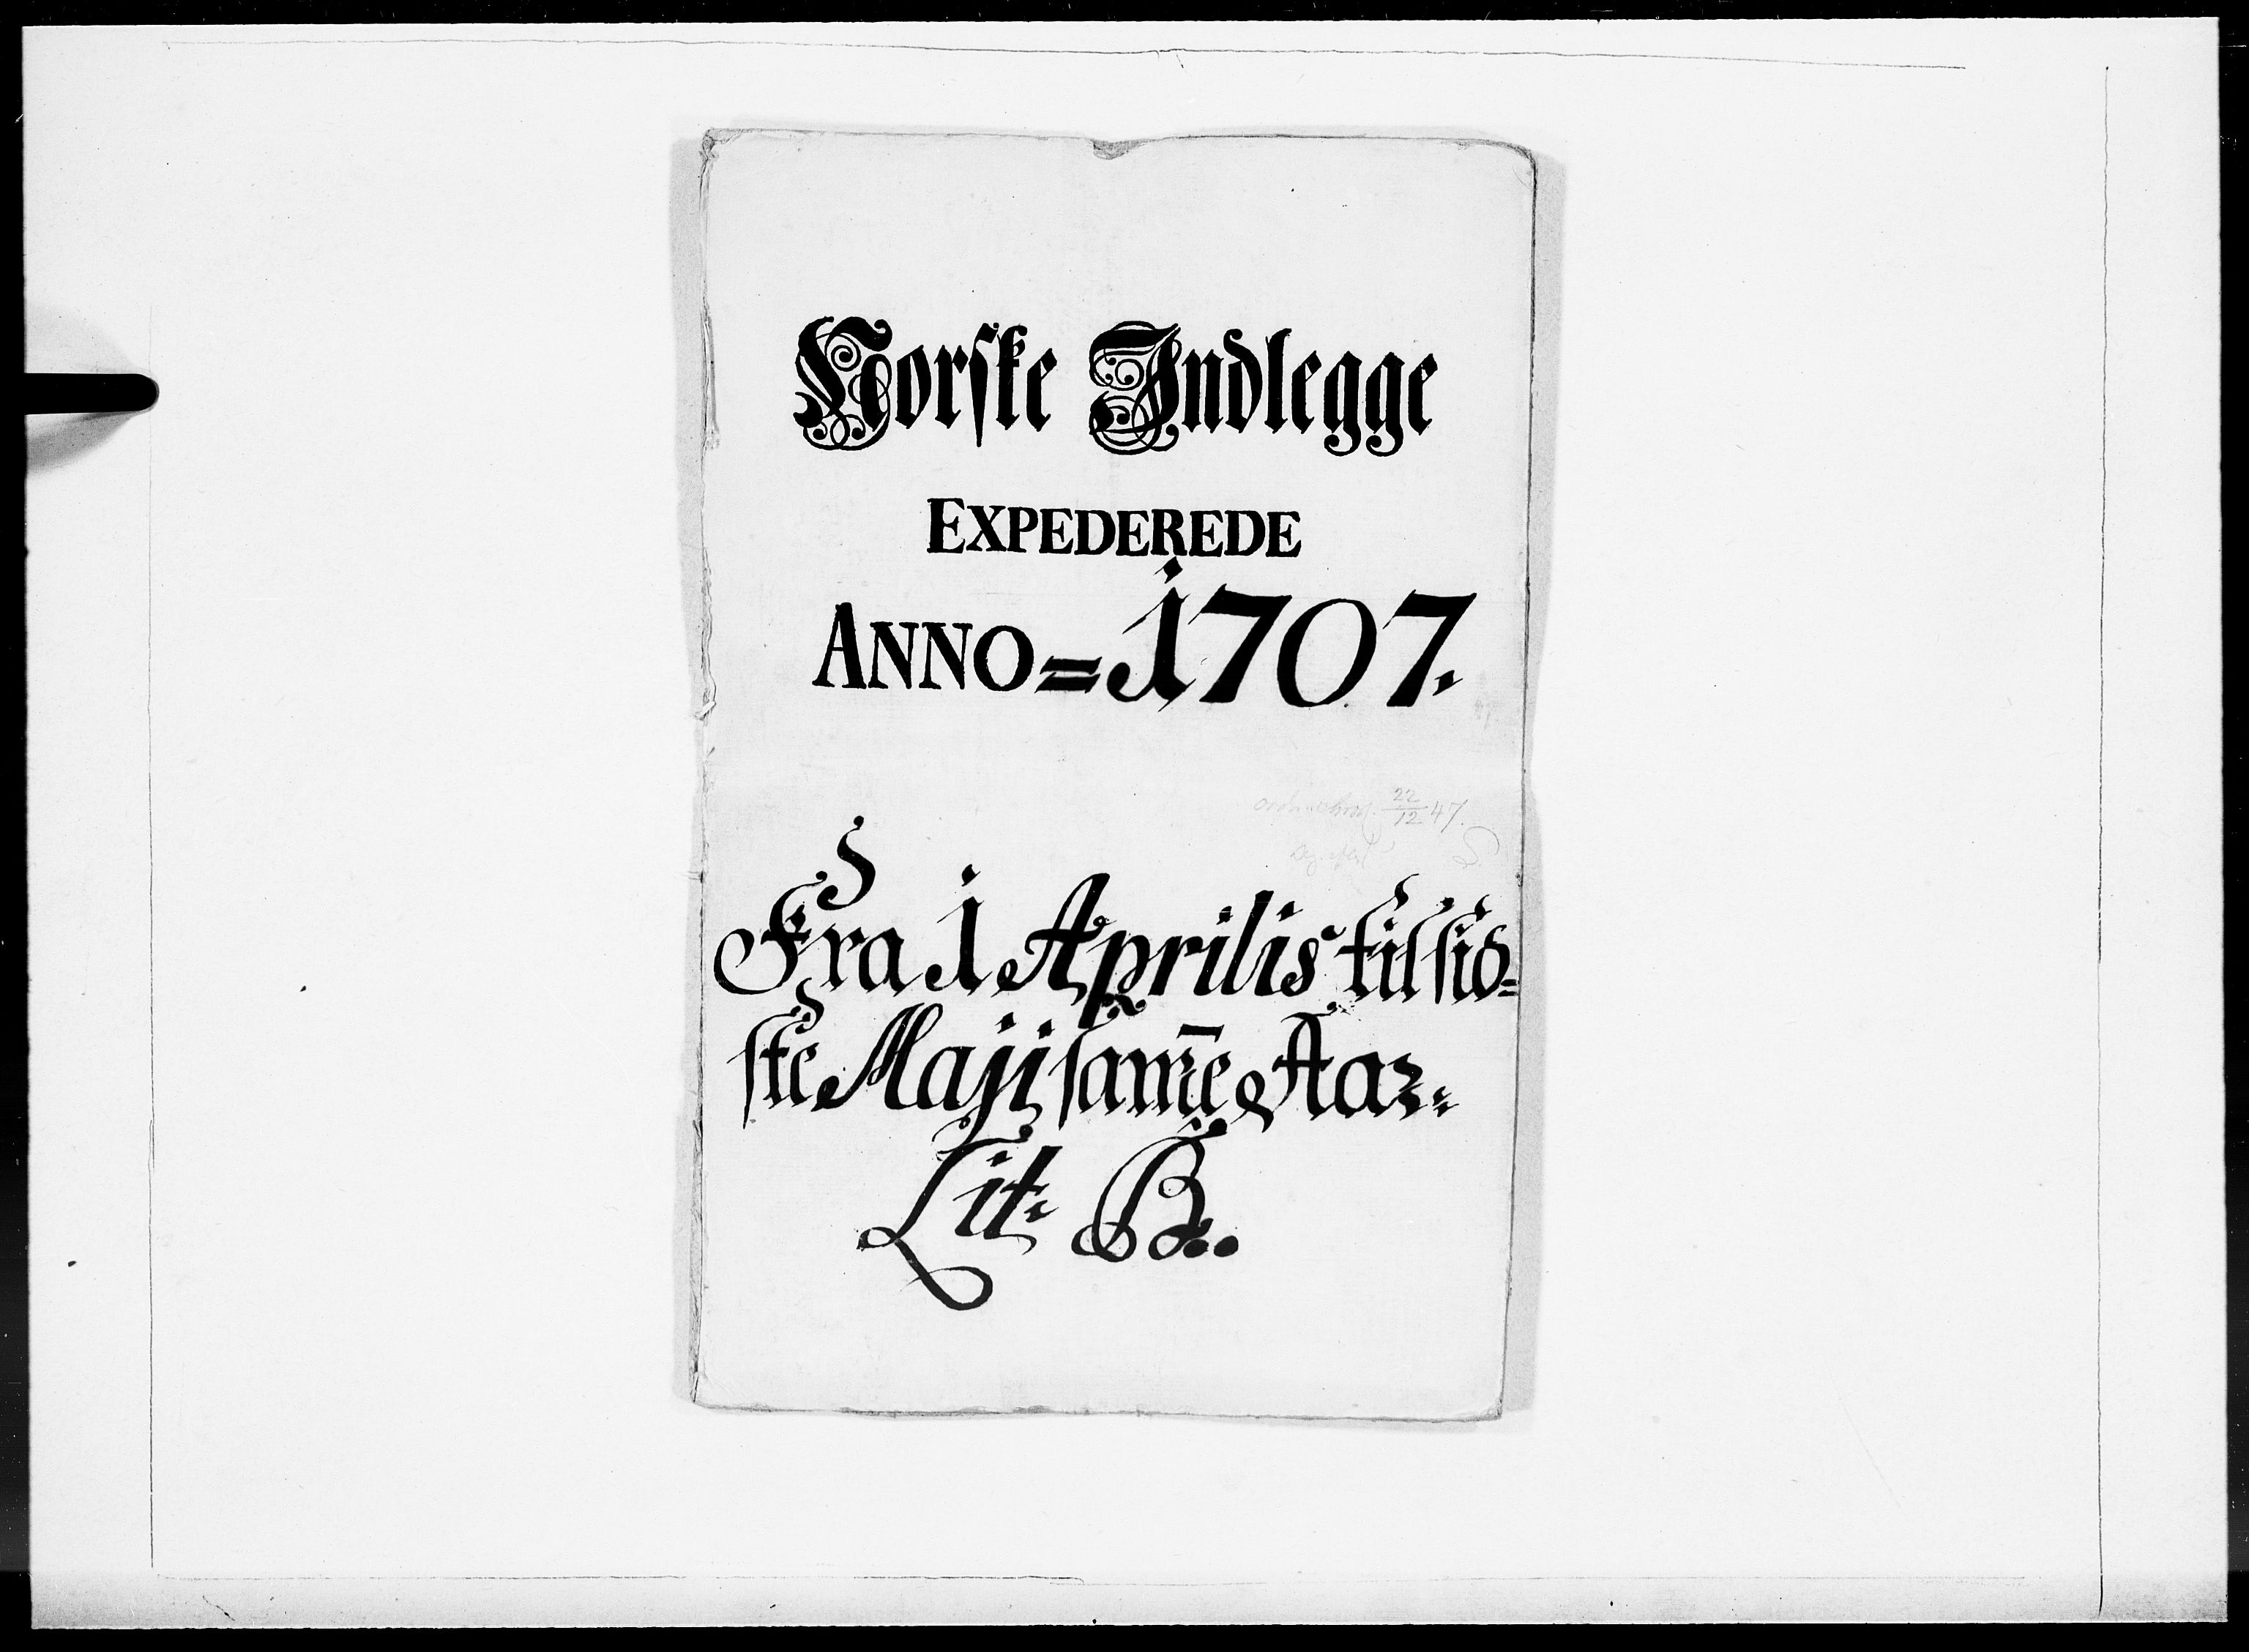 Norske Indlegge
EXPEDEREDE
ANNO=1707.
22/12 47.
Fra 1 Aprilis til sid=
ste Maji sam̄e Aar.
Lit: B..